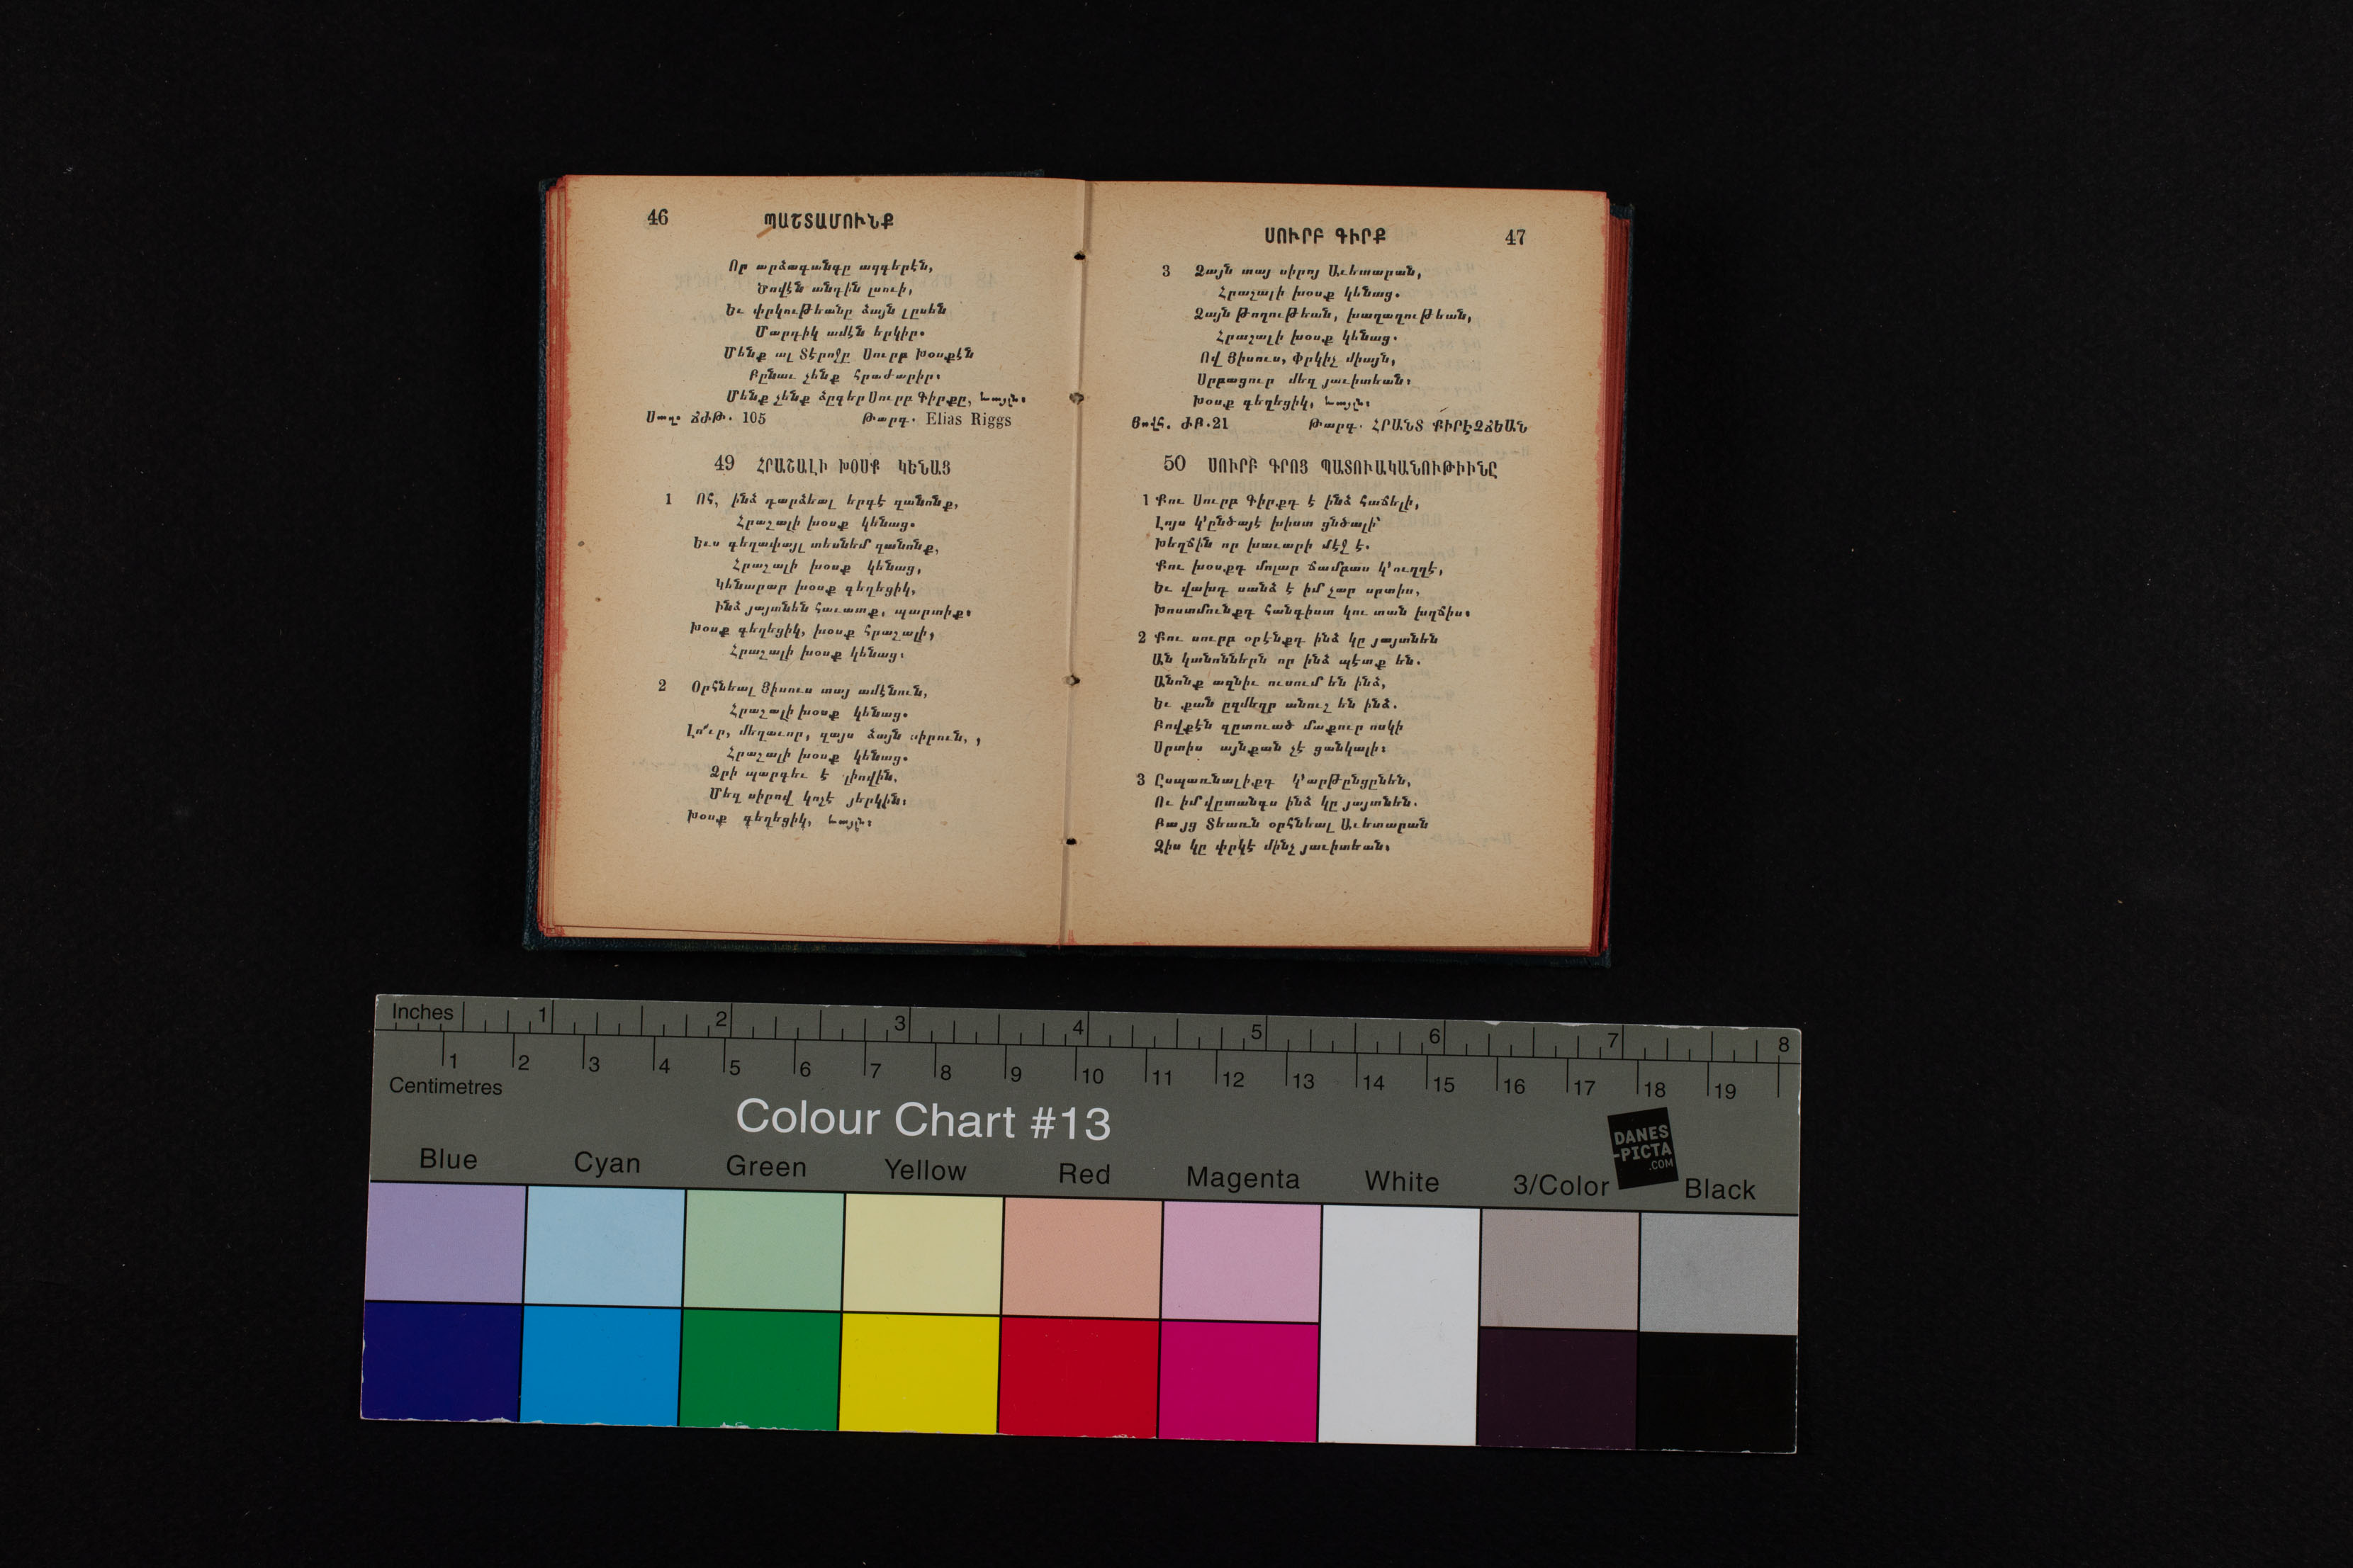 46 ՊԱՇՏԱՄՈՒՆՔ
Որ արձագանգը ազգերէն,
Ծովէն անդին լսուի,
Եւ փրկութեանը ձայն լըսեն
Մարդիկ ամէն երկիր.
Մենք ալ Տէրոջը Սուրբ Խօսքէն
Բընաւ չենք հրաժարիր։
Մենք չենք ձըգեր Սուրբ Գիրքը, եւայլն։
Սաղ. ՃԺԹ. 105 Թարգ. Elias Riggs
49 ՀՐԱՇԱԼԻ ԽՕՍՔ ԿԵՆԱՑ
1 Ոհ, ինձ դարձեալ երգէ զանոնք,
Հրաշալի խօսք կենաց.
Եւս գեղափայլ տեսնեմ զանոնք,
Հրաշալի խօսք կենաց,
Կենարար խօսք գեղեցիկ,
Ինձ յայտնեն հաւատք, պարտիք։
Խօսք գեղեցիկ, խօսք հրաշալի,
Հրաշալի խօսք կենաց։
2 Օրհնեալ Յիսուս տայ ամէնուն,
Հրաշալի խօսք կենաց.
Լո՛ւր, մեղաւոր, զայս ձայն սիրուն, ,
Հրաշալի խօսք կենաց.
Ձրի պարգեւ է լիովին,
Մեզ սիրով կոչէ յերկին։
Խօսք գեղեցիկ, եւայլն։
ՍՈՒՐԲ ԳԻՐՔ 47
3 Ձայն տայ սիրոյ Աւետարան,
Հրաշալի խօսք կենաց.
Ձայն թողութեան, խաղաղութեան,
Հրաշալի խօսք կենաց.
Ով Յիսուս, Փրկիչ միայն,
Սրբացուր մեզ յաւիտեան։
Խօսք գեղեցիկ, եւայլն։
Յովհ. ԺԲ.21 Թարգ. ՀՐԱՆՏ ՔԻՐԷՋՃԵԱՆ
50 ՍՈՒՐԲ ԳՐՈՑ ՊԱՏՈՒԱԿԱՆՈՒԹԻՒՆԸ
1 Քու Սուրբ Գիրքդ է ինձ հաճելի,
Լոյս կ՚ընծայէ խիստ ցնծալի՝
Խեղճին որ խաւարի մէջ է.
Քու խօսքդ մոլար ճամբաս կ՚ուղղէ,
Եւ վախդ սանձ է իմ չար սրտիս,
Խոստմունքդ հանգիստ կու տան խղճիս։
2 Քու սուրբ օրէնքդ ինձ կը յայտնեն
Ան կանոններն որ ինձ պէտք են.
Անոնք ազնիւ ուսում են ինձ,
Եւ քան ըզմեղր անուշ են ինձ.
Բովքէն զըտուած մաքուր ոսկի
Սրտիս այնքան չէ ցանկալի։
3 Ըսպառնալիքդ կ՚արթընցընեն,
Ու իմ վըտանգս ինձ կը յայտնեն.
Բայց Տեառն օրհնեալ Աւետարան
Զիս կը փրկէ մինչ յաւիտեան։
Inches 1 2 3 4 5 6 7 8
1 2 3 4 5 6 7 8 9 10 11 12 13 14 15 16 17 18 19
Centimetres
Colour Chart #13
DANES
-PICTA
.COM
Blue Cyan Green Yellow Red Magenta White 3/Color Black